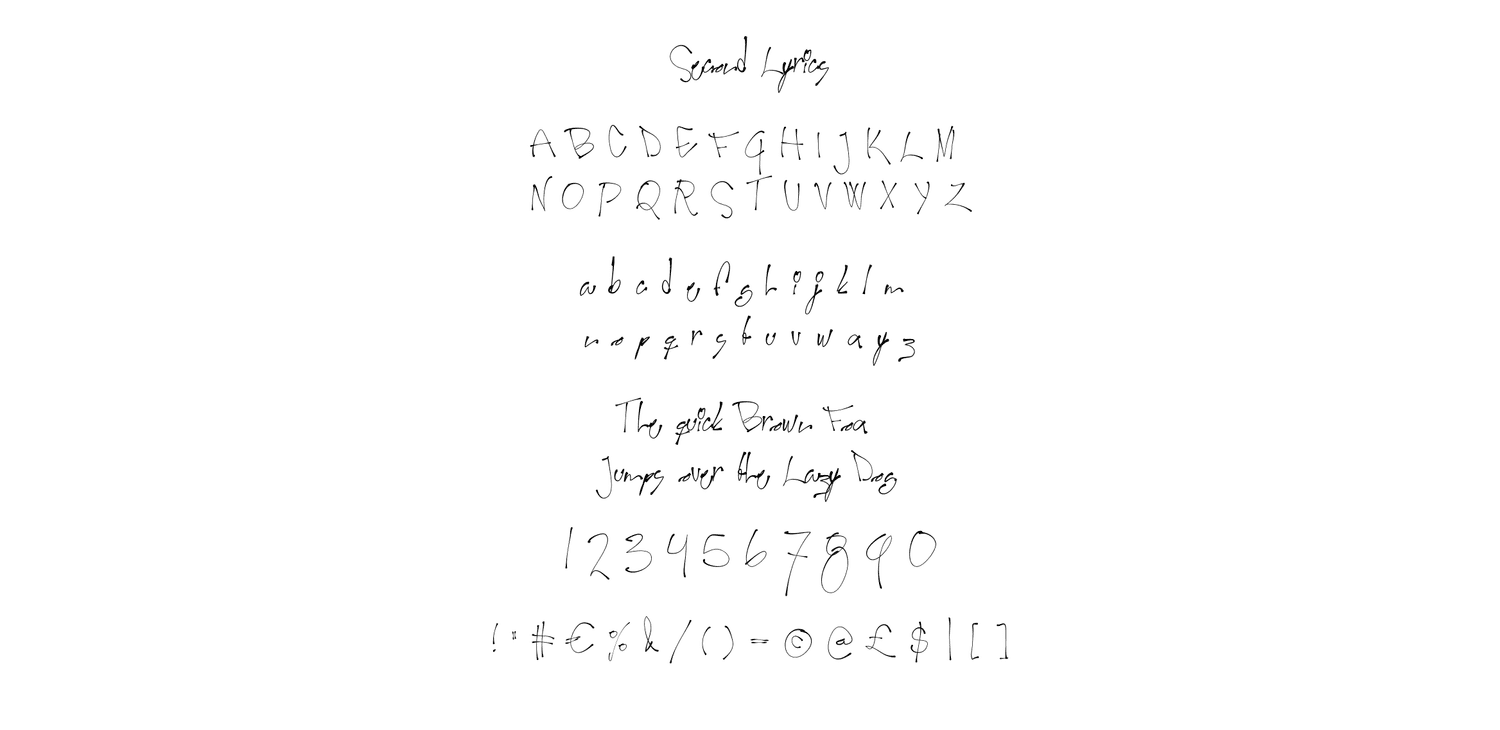 Second Lyrics
A B C D E F G H I J K L M
N O P Q R S T U V W X Y Z
a b c d e f g h i j k l m
n o p q r s t u v w x y z
The quick Brown Fox
Jumps over the Lazy Dog
1 2 3 4 5 6 7 8 9 0
! " # € % & / ( ) = © @ £ $ | [ ]